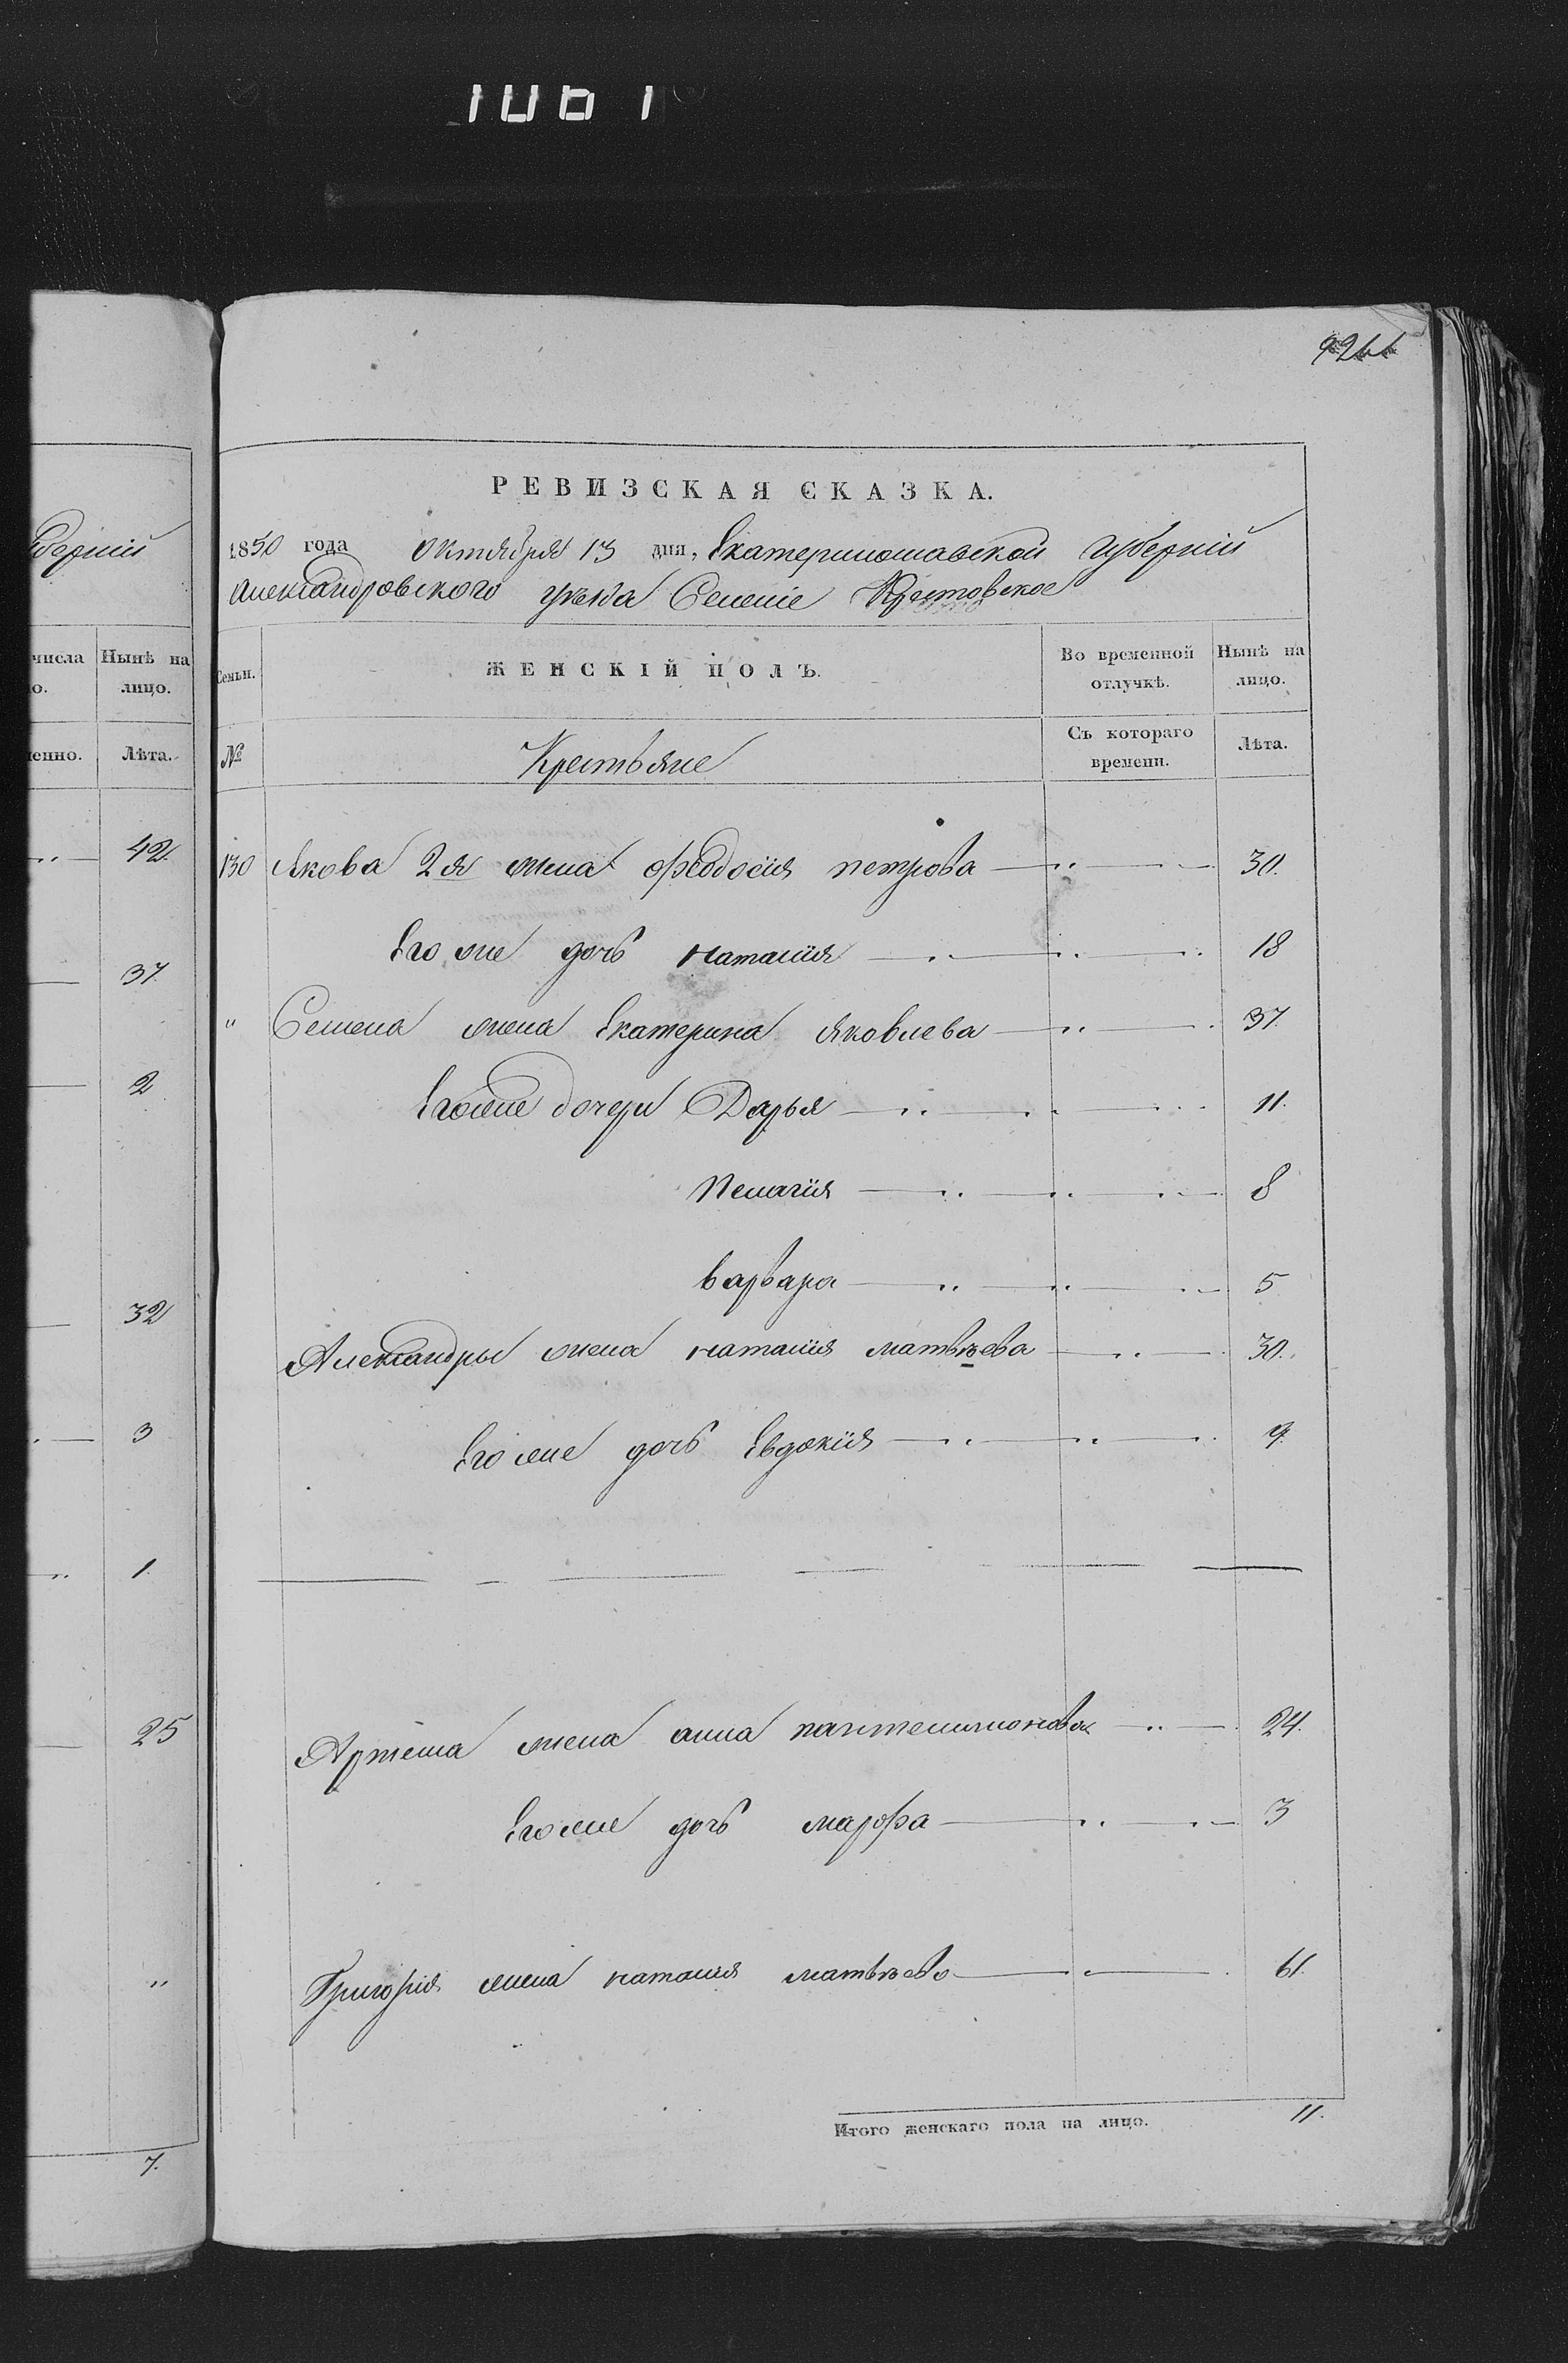 1061
926
берніи
числа
о.
Нынѣ на
лицо.
менно.
Лѣта.
42.
37.
2
32
3
1.
25
"
7.
РЕВИЗСКАЯ СКАЗКА.
1850 года октября 13 дня, Екатеринославской губерніи
Александровского уѣзда Селеніе Крестовское
Семьи.
ЖЕНСКІЙ ПОЛЪ.
Во временной
отлучкѣ.
Нынѣ на
лицо.
№
Крестьяне
Съ котораго
времени.
Лѣта.
130 Якова 2я жена Феодосія петрова — " — 30.
Его же дочь наталія — " — " — 18
" Семена жена Екатерина Яковлева — " — 37.
Его же дочери Дарья — " — " — 11.
пелагія — " — " — 8
варвара — " — " — 5
Александры жена наталія матвѣева — " — 30.
Его же дочь Евдокія — " — " — 9.
Артема жена анна пантелимонова — " — 24.
Его же дочь марфа — " — 3
Григорія жена наталія матвѣева — " — 61.
Итого женскаго пола на лицо. 11.